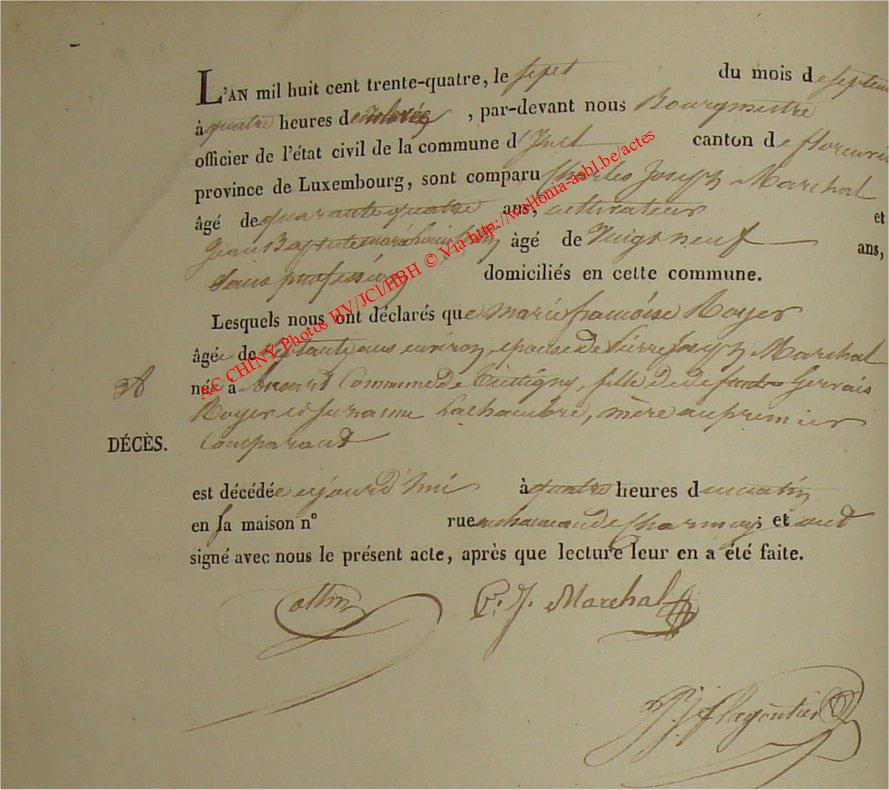 L'AN mil huit cent trente-quatre, le sept du mois de septem
à quatre heures de relevée, par-devant nous Bourgmestre
officier de l'état civil de la commune d' canton de florenvil
province de Luxembourg, sont comparu Charles Joseph Marchal
âgé de quarante quatre ans, cultivateur et
Jean Baptiste âgé de Vingt neuf ans,
Sans profession domiciliés en cette commune.
Lesquels nous ont déclarés que marie françoise Royer
âgée de septante ans environ, epouse de Pierre Joseph Marchal
née à Ansart Commune de Tintigny, fille de defunts Gervais
Royer et Lachambre, mère au premier
DÉCÈS. Comparant
est décédée aujourd'hui à quatre heures du matin
en sa maison n° rue au hameau de Charmoy; et ont
signé avec nous le présent acte, après que lecture leur en a été faite.
C. J. Marchal
AC CHINY Photos HV/JCI/HBH © Via http://wallonia-asbl.be/actes